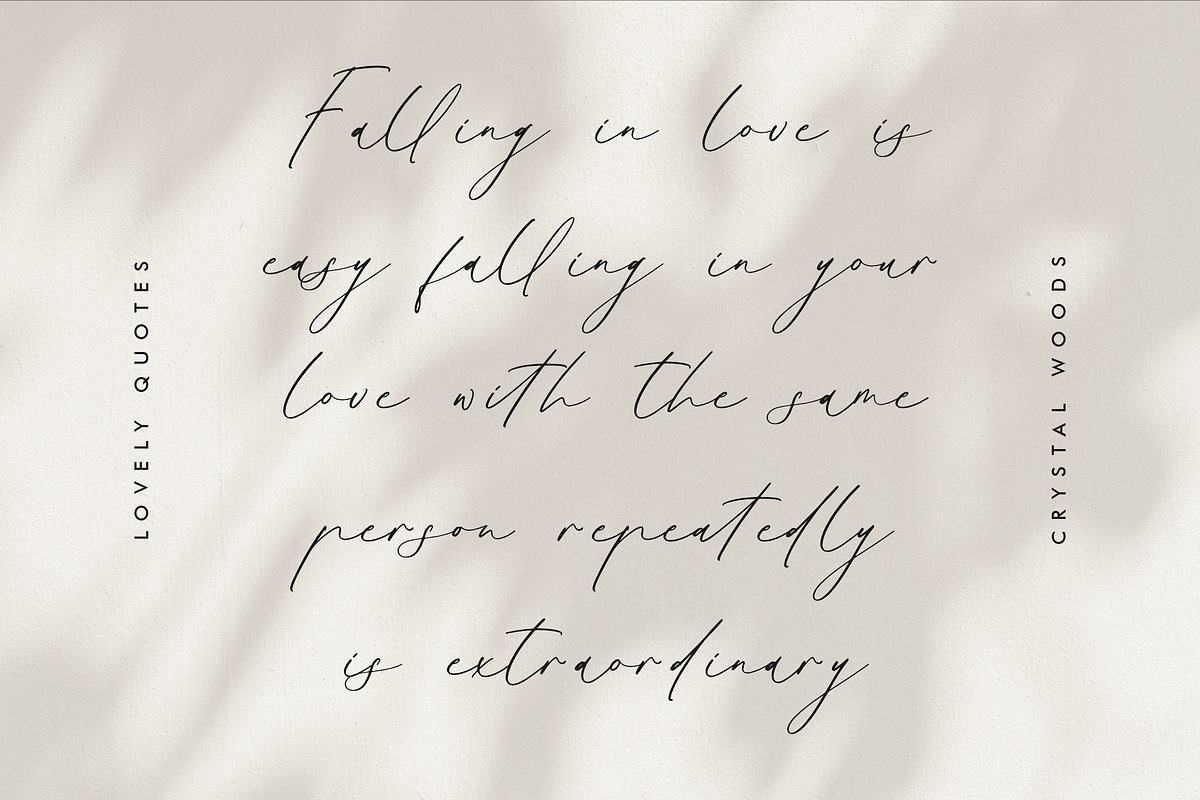 Falling in love is
easy falling in your
love with the same
person repeatedly
is extraordinary
LOVELY QUOTES
CRYSTAL WOODS